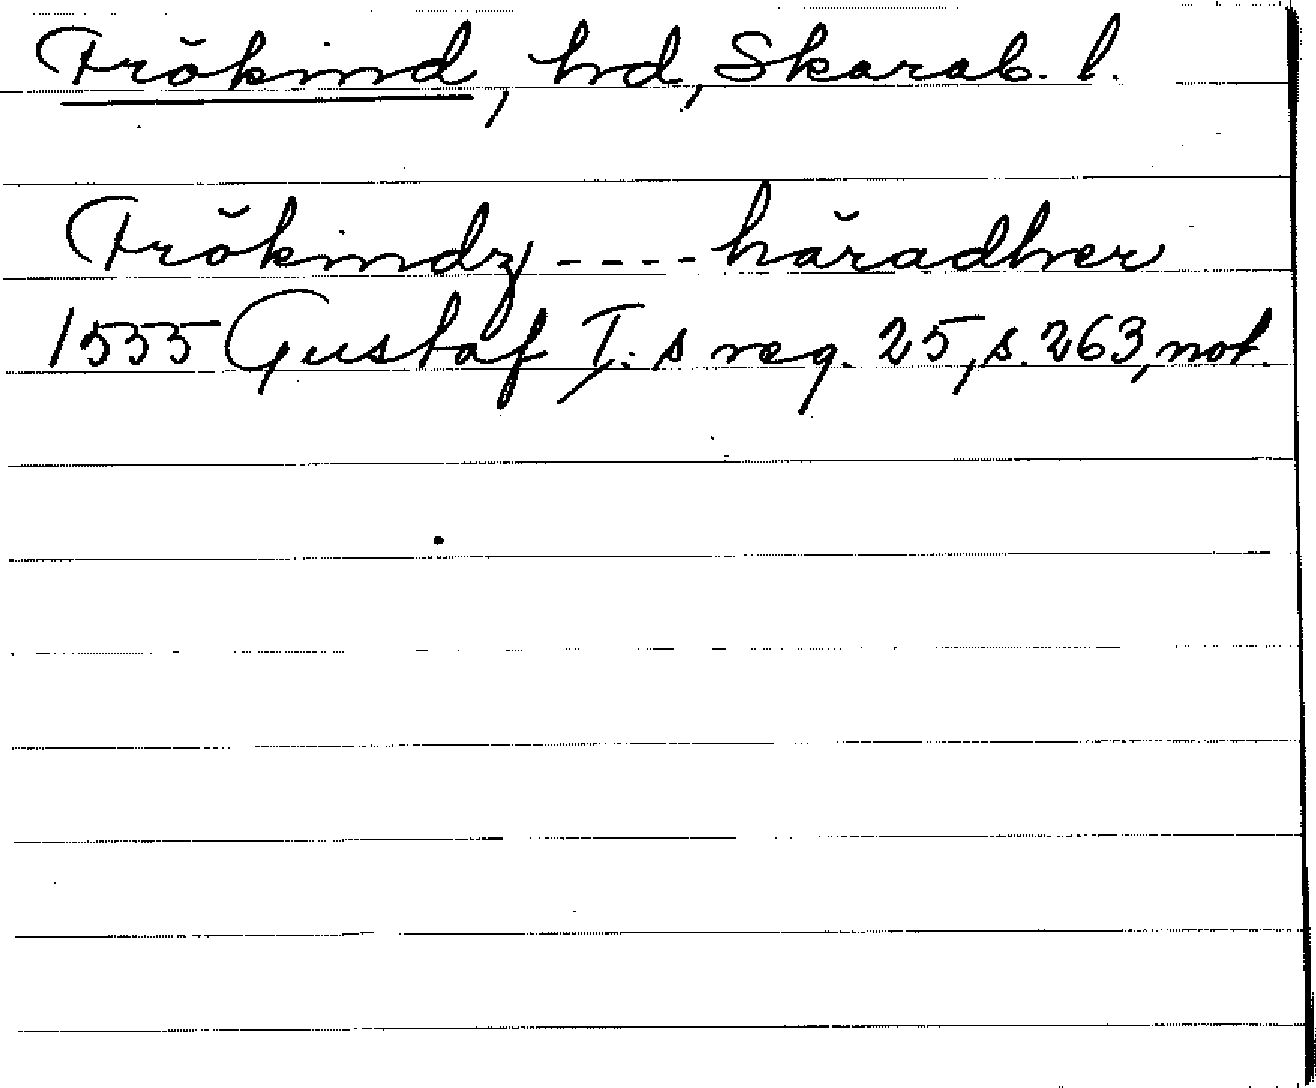 Frökind, hd, Skarab. l.
Frökindz ---- häradher
1555 Gustaf I:s reg. 25, s. 263, not.